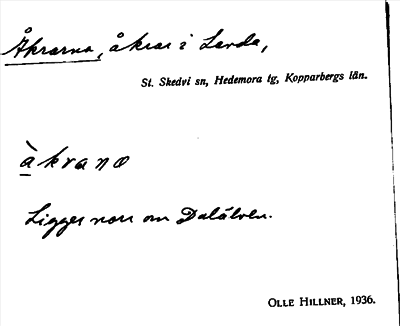 Åkrarna, åkrar i Landa,
St. Skedvi sn, Hedemora tg, Kopparbergs län.
àkrana
Ligger norr om Dalälven.
OLLE HILLNER, 1936.